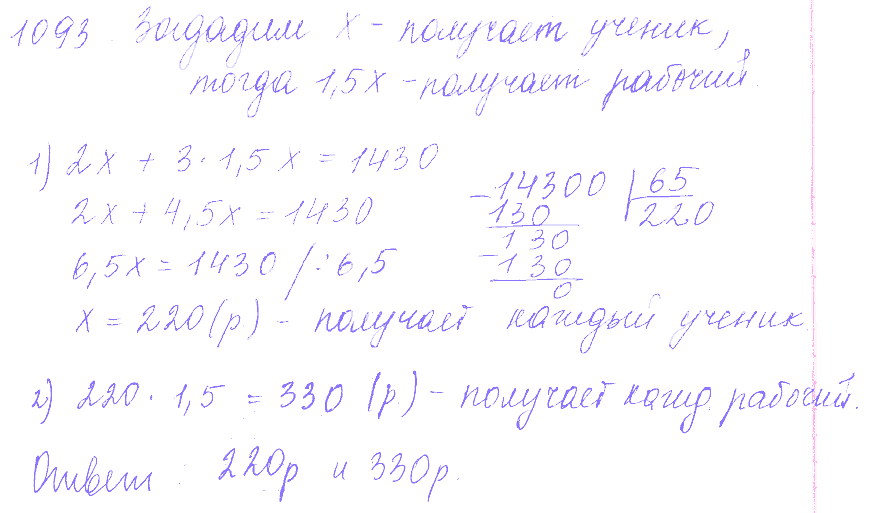 1093. Зададим х - получает ученик,
тогда 1,5х - получает рабочий.
1) 2х + 3 · 1,5 х = 1430
2х + 4,5х = 1430
6,5х = 1430 / : 6,5
х = 220 (р.) - получает каждый ученик.
- 14300 | 65
130 220
130
- 130
0
2) 220 · 1,5 = 330 (р.) - получает кажд. рабочий.
Ответ : 220р и 330р.